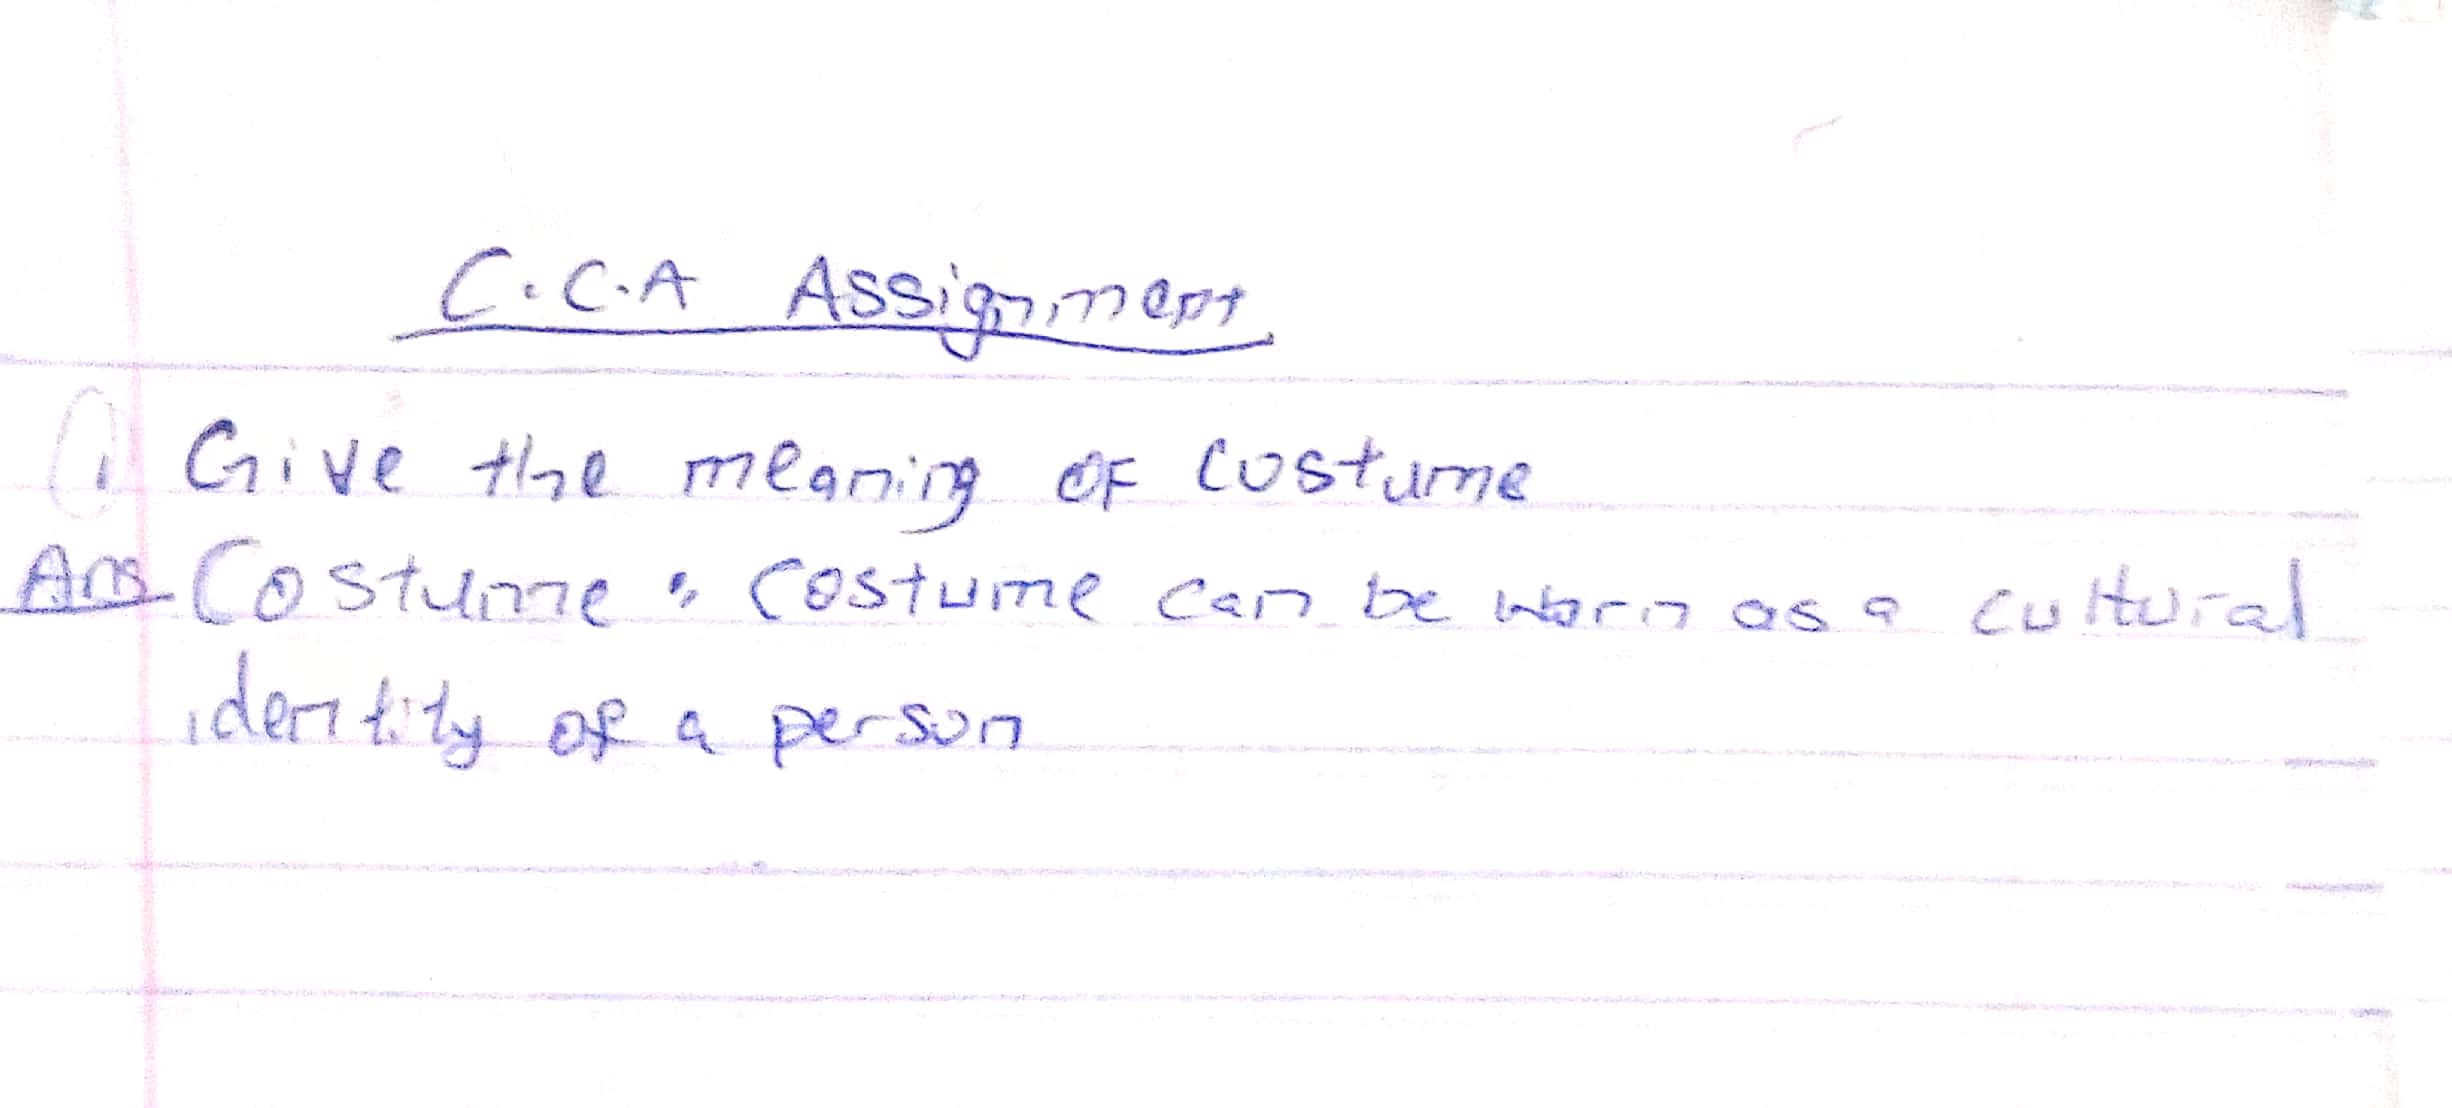 C.C.A Assignment
1 Give the meaning of Costume
Ans Costume : Costume can be worn as a cultural
identity of a person